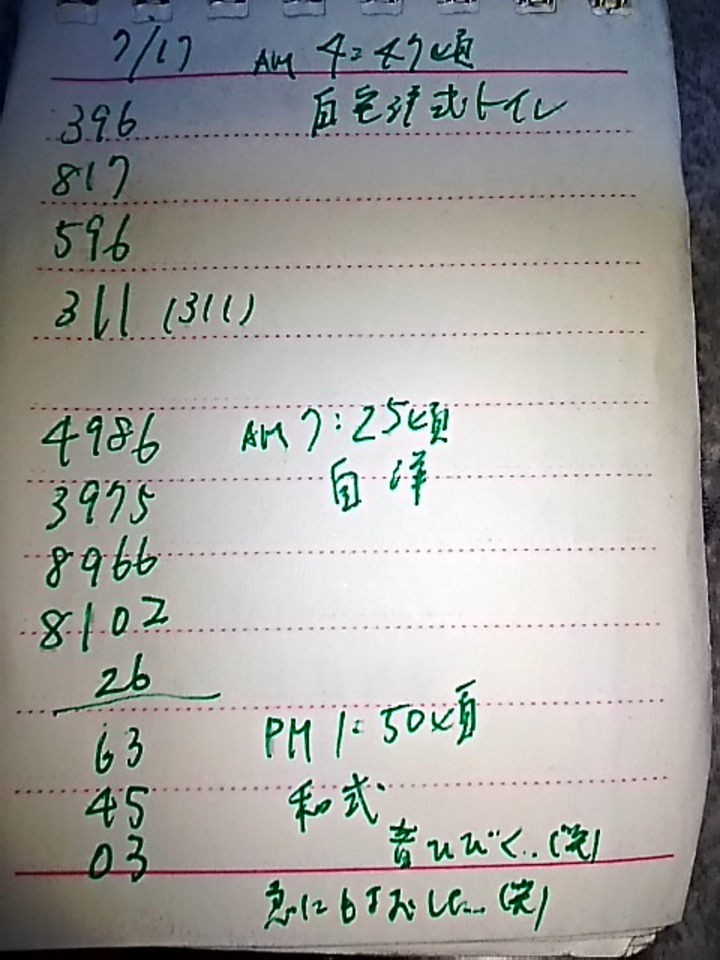 7/17 AM 4:47頃
396 自宅洋式トイレ
817
596
311 (311)
4986 AM 7:25頃
3975 自 洋
8966
8102
26
63 PM 1:50頃
45 和式
03 音ひびく..(笑)
急にもよおした...(笑)